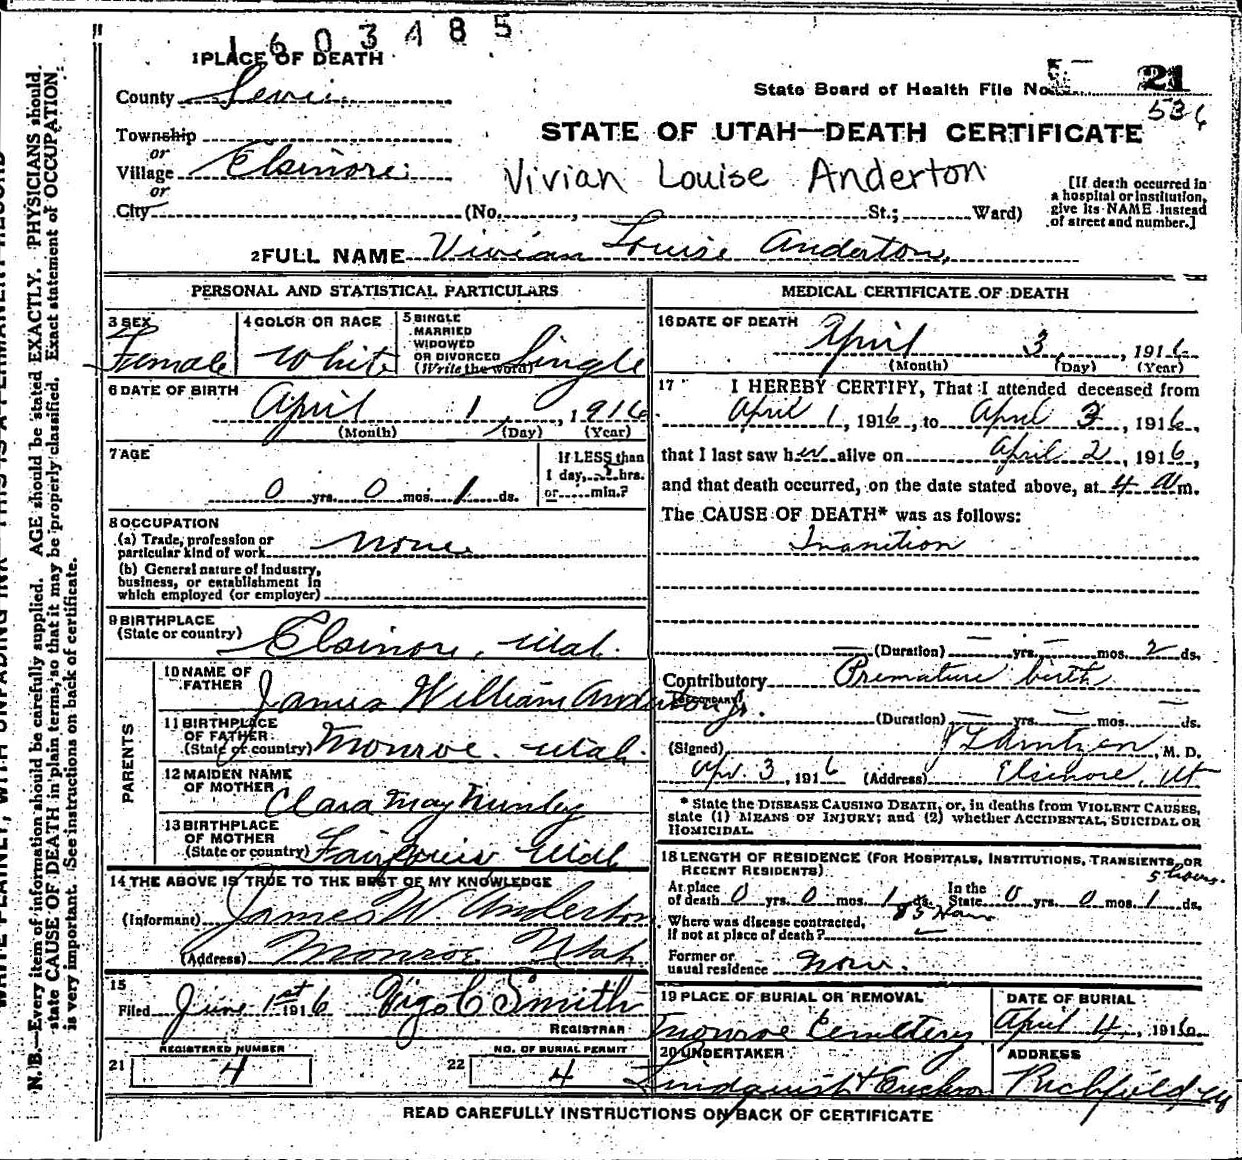 1603485
1 PLACE OF DEATH
State Board of Health File No. 5 21
536
County Sevier
Township
STATE OF UTAH—DEATH CERTIFICATE
or
Village Elsinore
Vivian Louise Anderton
or
[If death occurred in
a hospital or institution,
give its NAME instead
of street and number.]
City (No. , St.; Ward)
2 FULL NAME Vivian Louise Anderton
PERSONAL AND STATISTICAL PARTICULARS
3 SEX
Female
4 COLOR OR RACE
White
5 SINGLE
MARRIED
WIDOWED
OR DIVORCED
(Write the word) Single
6 DATE OF BIRTH
April 1, 1916
(Month) (Day) (Year)
7 AGE
0 yrs. 0 mos. 1 ds.
If LESS than
1 day, hrs.
or min.?
8 OCCUPATION
(a) Trade, profession or
particular kind of work none
(b) General nature of industry,
business, or establishment in
which employed (or employer)
9 BIRTHPLACE
(State or country) Elsinore, Utah.
PARENTS
10 NAME OF
FATHER James William Anderton Jr.
11 BIRTHPLACE
OF FATHER
(State or country) Monroe. Utah.
12 MAIDEN NAME
OF MOTHER Clara May
13 BIRTHPLACE
OF MOTHER
(State or country) Utah
14 THE ABOVE IS TRUE TO THE BEST OF MY KNOWLEDGE
(Informant) James W Anderton
(Address) Monroe Utah
15
Filed June 1st 1916 Vigo C Smith
REGISTRAR
REGISTERED NUMBER
21 4
NO. OF BURIAL PERMIT
22 4
MEDICAL CERTIFICATE OF DEATH
16 DATE OF DEATH
April 3, 1916
(Month) (Day) (Year)
17 I HEREBY CERTIFY, That I attended deceased from
April 1, 1916, to April 3, 1916,
that I last saw her alive on April 2, 1916,
and that death occurred, on the date stated above, at 4 a m.
The CAUSE OF DEATH* was as follows:
Inanition
(Duration) — yrs. — mos. 2 ds.
Contributory Premature birth
(SECONDARY)
(Duration) — yrs. — mos. — ds.
(Signed) , M. D.
Apr 3, 1916 (Address) Elsinore, Ut
* State the DISEASE CAUSING DEATH, or, in deaths from VIOLENT CAUSES,
state (1) MEANS OF INJURY; and (2) whether ACCIDENTAL, SUICIDAL OR
HOMICIDAL.
18 LENGTH OF RESIDENCE (FOR HOSPITALS, INSTITUTIONS, TRANSIENTS, OR
RECENT RESIDENTS).
5 hours.
At place
of death 0 yrs. 0 mos. 1 ds.
In the
State 0 yrs. 0 mos. 1 ds.
Where was disease contracted,
if not at place of death?
Former or
usual residence None.
19 PLACE OF BURIAL OR REMOVAL
Monroe Cemetery
DATE OF BURIAL
April 4, 1916
20 UNDERTAKER
Lindquist & Erickson
ADDRESS
Richfield, Ut
READ CAREFULLY INSTRUCTIONS ON BACK OF CERTIFICATE
N. B.—Every item of information should be carefully supplied. AGE should be stated EXACTLY. PHYSICIANS should
state CAUSE OF DEATH in plain terms, so that it may be properly classified. Exact statement of OCCUPATION
is very important. See instructions on back of certificate.